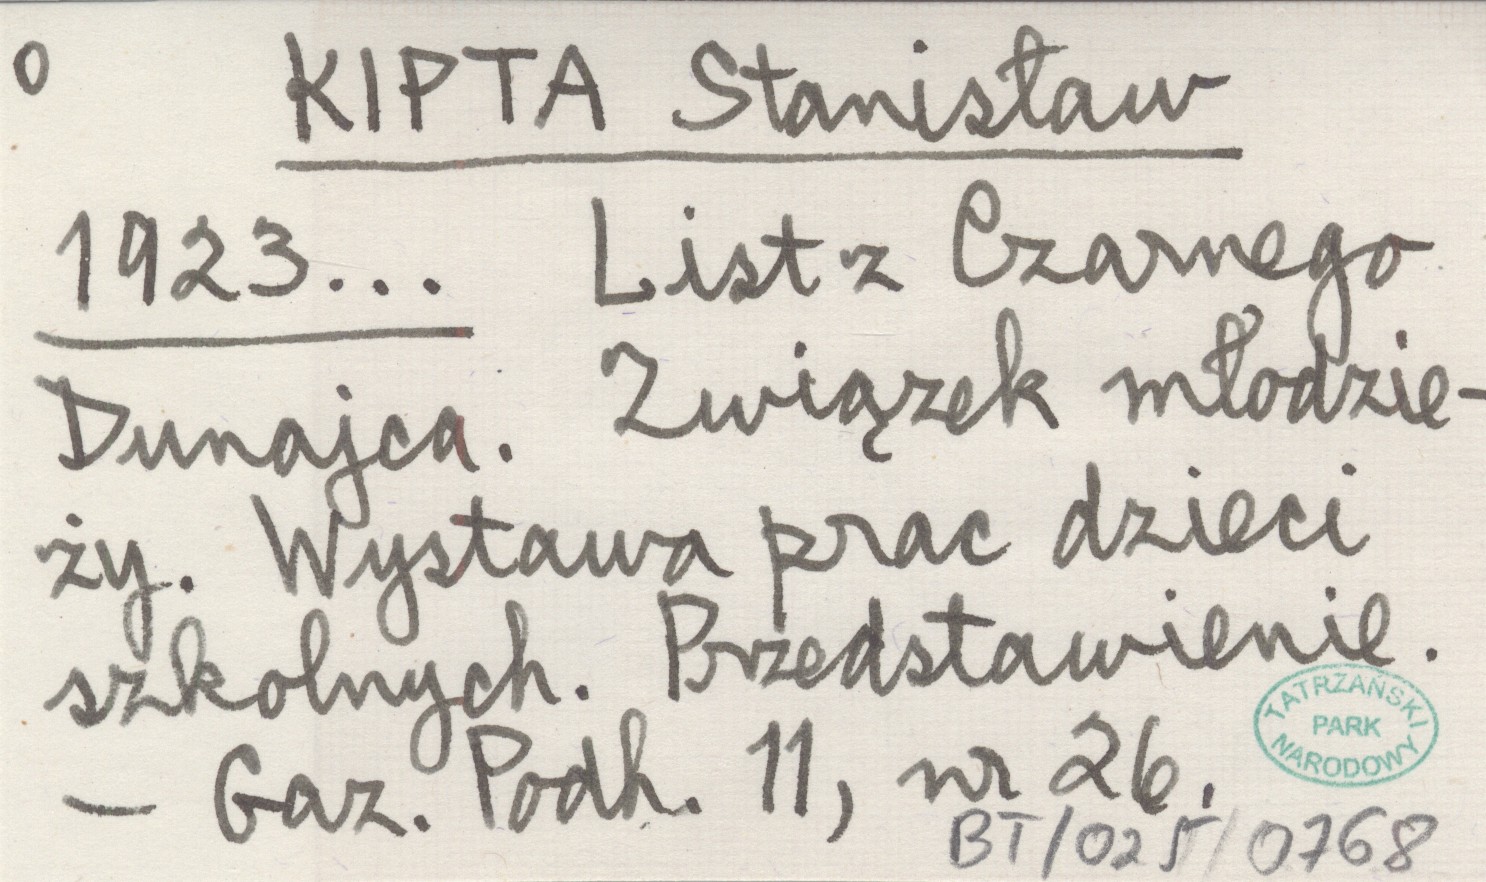 O KIPTA Stanisław
1923... List z Czarnego
Dunajca. Związek młodzie-
ży. Wystawa prac dzieci
szkolnych. Przedstawienie.
— Gaz. Podh. 11, nr 26.
TATRZAŃSKI
PARK
NARODOWY
BT/025/0768